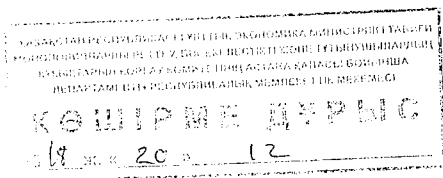 ҚАЗАҚСТАН РЕСПУБЛИКАСЫ ҰЛТТЫҚ ЭКОНОМИКА МИНИСТРЛІГІ ТАБИҒИ
МОНОПОЛИЯЛАРДЫ РЕТТЕУ, БӘСЕКЕЛЕСТІКТІ ЖӘНЕ ТҰТЫНУШЫЛАРДЫҢ
ҚҰҚЫҚТАРЫН ҚОРҒАУ КОМИТЕТІНІҢ АСТАНА ҚАЛАСЫ БОЙЫНША
ДЕПАРТАМЕНТІ РЕСПУБЛИКАЛЫҚ МЕМЛЕКЕТТІК МЕКЕМЕСІ
КӨШІРМЕ ДҰРЫС
18 ж. « 20 » 12